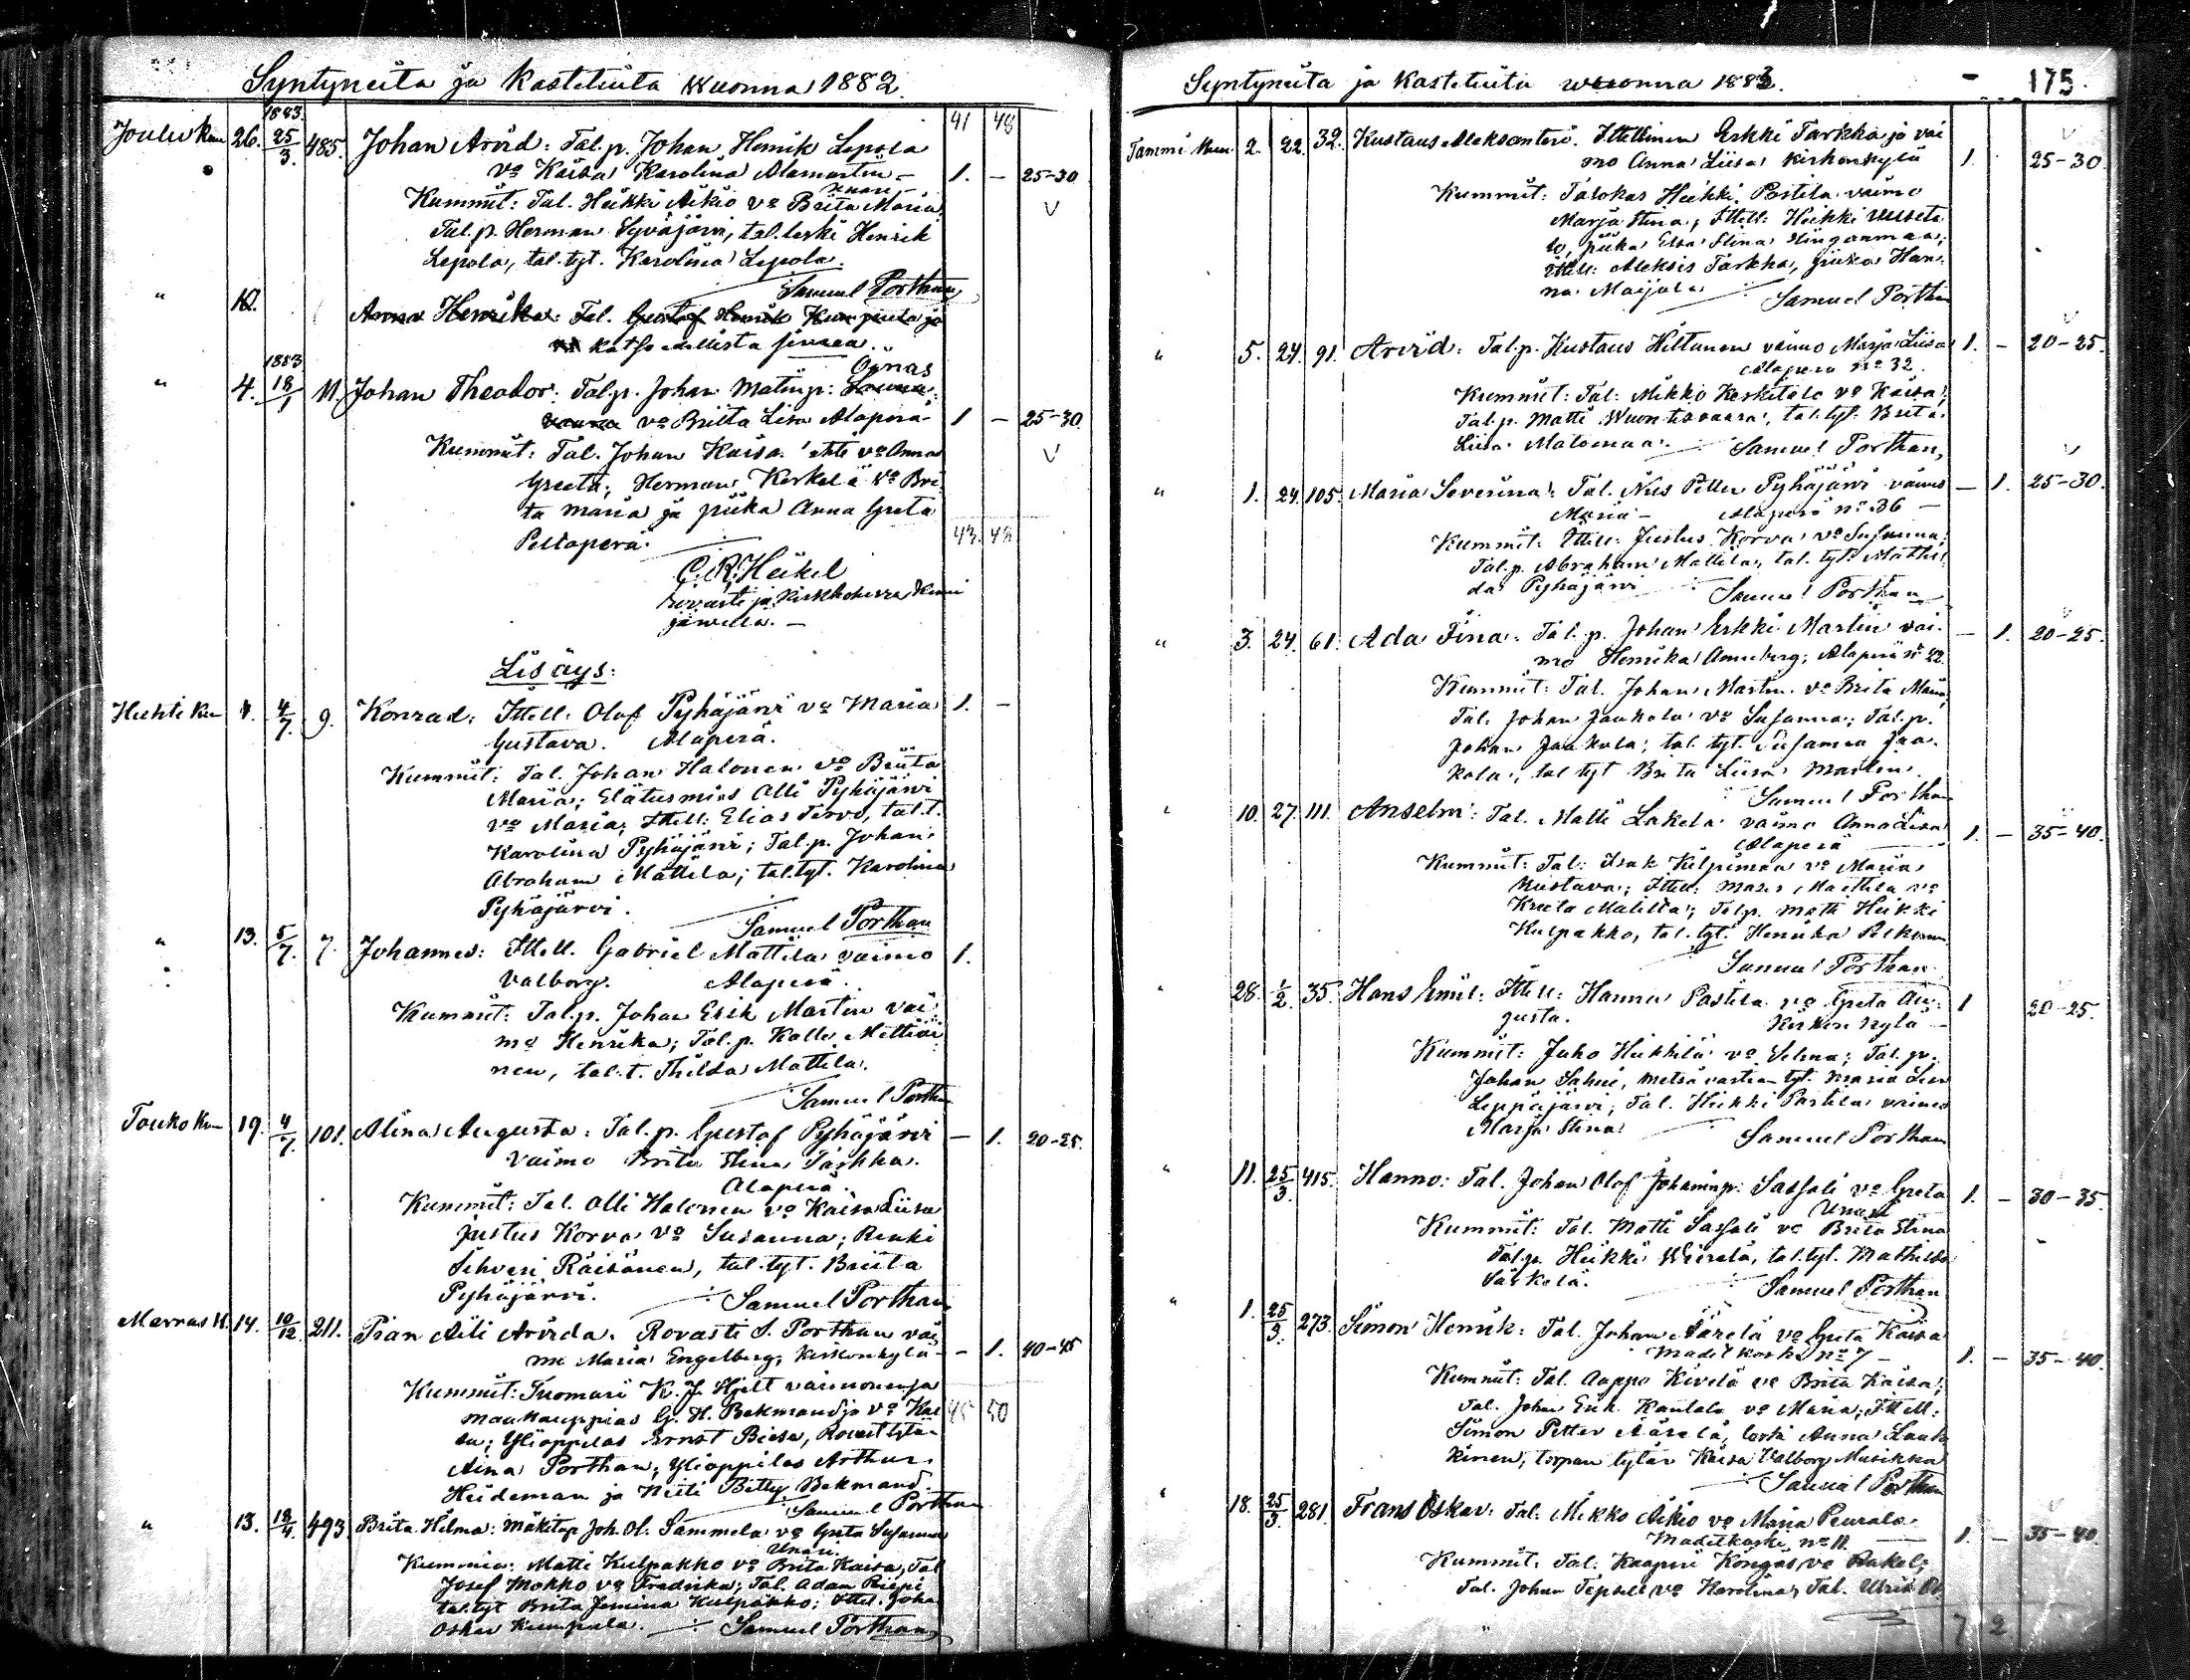 Syntyneitä ja Kastetuita Wuonna 1882.
1883. 41 48
Joulu kuu 26. 25/3. 485. Johan Arvid: Tal.p. Johan Henrik Lepola
vo Kaisa Karolina Alamartin - 1. - 25-30
Unari -
Kummit: Tal. Heikki Aikio vo Briita Maria,
Tal.p. Herman Syväjärvi, tal. leski Henrik
Lepola, tal. tyt. Karolina Lepola.
Samuel Porthan
" 10. Anna Henrika: Tal. Gustaf Henrik Kumpula ja
katso edellistä sivua.
1883 Ojnas
" 4. 18/1 11. Johan Theodor: Tal.p. Johan Matinp:
vo Britta Lisa Alaperä 1 - 25-30.
Kummit: Tal. Johan Kaisa vo Anna
Greeta; Herman Kerkelä vo Bri
ta Maria ja piika Anna Greta
Peltoperä. 43. 48
C. R. Heikel
rovasti ja kirkkoherra Kemi
järwellä. -
Lisäys:
Huhti kuu 4. 4/7. 9. Konrad: Ittell: Olof Pyhäjärvi vo Maria 1. -
Gustava. Alaperä.
Kummit: Tal. Johan Halonen vo Briita
Maria; Elätusmies Olli Pyhäjärvi
vo Maria; Ittell: Elias Tervo, tal.t.
Karolina Pyhäjärvi; Tal.p. Johan
Abraham Mattila; tal.tyt. Karolina
Pyhäjärvi.
Samuel Porthan
" 13. 5/7. 7. Johannes: Ittell. Gabriel Mattila vaimo 1.
Valborg. Alaperä.
Kummit: Tal.p. Johan Erik Martin vai
mo Henrika; Tal.p. Kalle Mettiäi
nen, tal.t. Thilda Mattila.
Samuel Porthan
Touko kuu 19. 4/7. 101. Alina Augusta: Tal.p. Gustaf Pyhäjärvi - 1. 20-25.
vaimo Brita Stina Tarkka.
Alaperä.
Kummit: Tal. Olli Halonen vo Kaisa Liisa
Justus Korva vo Susanna; Renki
Sihveri Räisänen, tal. tyt. Briita
Pyhäjärvi.
Samuel Porthan
Marras k. 14. 10/12. 211. Pian Aili Arvida. Rovasti S. Porthan vai
mo Maria Engelberg, Kirkonkylä - - 1. 40-45
Kummit: Tuomari K. J. Hjelt vaimonensa
maakauppias G. H. Bekmand ja vo Kai 45 50
sa; Ylioppilas Ernst Biese, Rovast tytär
Aina Porthan; Ylioppilas Arthur
Heideman ja Neiti Betty Bekmand.
Samuel Porthan
" 13. 493 Brita Helma: Mäkitup Joh. Ol. Sammela vo Greta Susanna
Unari.
Kummia: Matti Kulpakko vo Brita Kaisa, Tal
Josef Mokko vo Fredrika; Tal. Adam Riipi
tal.tyt Brita Jemina Kulpakko; Ittel. Joha
Oskar Kumpula.
Samuel Porthan
Syntyneitä ja Kastetuita wuonna 1883. - 175.
Tammi kuu 2. 22. 32. Kustaus Aleksanteri. Itellinen Erkki Tarkka ja vai
mo Anna Liisa Kirkonkylä 1. 25-30.
Kummit: Talokas Heikki Postila vaimo
Marja Stina; Ittell: Heikki
piika Elsa Stina
Ittell: Aleksis Tarkka, piika Han
na Maijala
Samuel Porthan
" 5. 24. 91. Arvid: Tal.p. Kustaus Hiltunen vaimo Marja Liisa 1. - 20-25.
Alaperä No 32.
Kummit: Tal: Mikko Keskitalo vo Kaisa,
Tal.p. Matti Wuontisvaara, tal. tyt. Brita
Liisa Matomaa.
Samuel Porthan,
" 1. 24. 105. Maria Severina: Tal. Nils Petter Pyhäjärvi vaimo - 1. 25-30.
Maria - Alaperä No 36 -
Kummit: Ittell: Justus Korva vo Susanna;
Tal.p. Abraham Mattila, tal. tyt. Mathil
da Pyhäjärvi
Samuel Porthan
" 3. 24. 61. Ada Fina: Tal.p. Johan Erkki Martin vai - 1. 20-25.
mo Henrika Anneberg; Alaperä No 22.
Kummit: Tal. Johan Martin vo Brita Maria,
Tal. Johan Jaakola vo Susanna; Tal.p.
Johan Jaakola; tal. tyt. Susanna Jaa
kola, tal tyt Brita Liisa Martin.
Samuel Porthan
" 10. 27. 111. Anselm: Tal. Matti Lakela vaimo Anna Liisa 1. - 35-40.
Alaperä
Kummit: Tal: Isak Kilpimaa vo Maria
Kustava; Ittell: Mattila vo
Kreeta Matilta; Tal.p. Matti Heikki
Kulpakko, tal. tyt. Henrika
Samuel Porthan
" 28. 1/2. 35. Hans Emil: Ittell: Hannu Postila vo Greta Au- 1 20-25.
gusta. Kirkon kylä -
Kummit: Juho Heikkilä vo Selma; Tal.p.
Johan Sahui, Metsävartia tyt. Maria Lisa
Leppäjärvi; Tal. Heikki Postila vaimo
Marja Stina
Samuel Porthan
" 11. 25/3. 415. Hanno: Tal. Johan Olof Johaninp: Sassali vo Greta 1. - 30-35.
Unari
Kummit: Tal. Matti Sassali vo Brita Stina
Tal.p. Heikki Wierelä, tal. tyt. Mathilda
Särkelä.
Samuel Porthan
" 1. 25/3. 273. Simon Henrik: Tal. Johan Äärelä vo Greta Kaisa
Madetkoski No 7 - 1. - 35-40.
Kummit: Tal. Aappo Kivelä vo Brita Kaisa;
Tal. Johan Erik Kantola vo Maria; Ittell:
Simon Petter Äärelä, leski Anna Lauk
kinen; torpan tytär Kaisa Valborg Musikka
Samuel Porthan
" 18. 25/3. 281. Frans Oskar: Tal: Mikko Aikio vo Maria Peurala
Madetkoski No 11. 1. - 35-40.
Kummit: Tal: Kaapri Köngäs vo Rakel;
Tal. Johan Tepsell vo Karolina, Tal. Ulrik
7 2